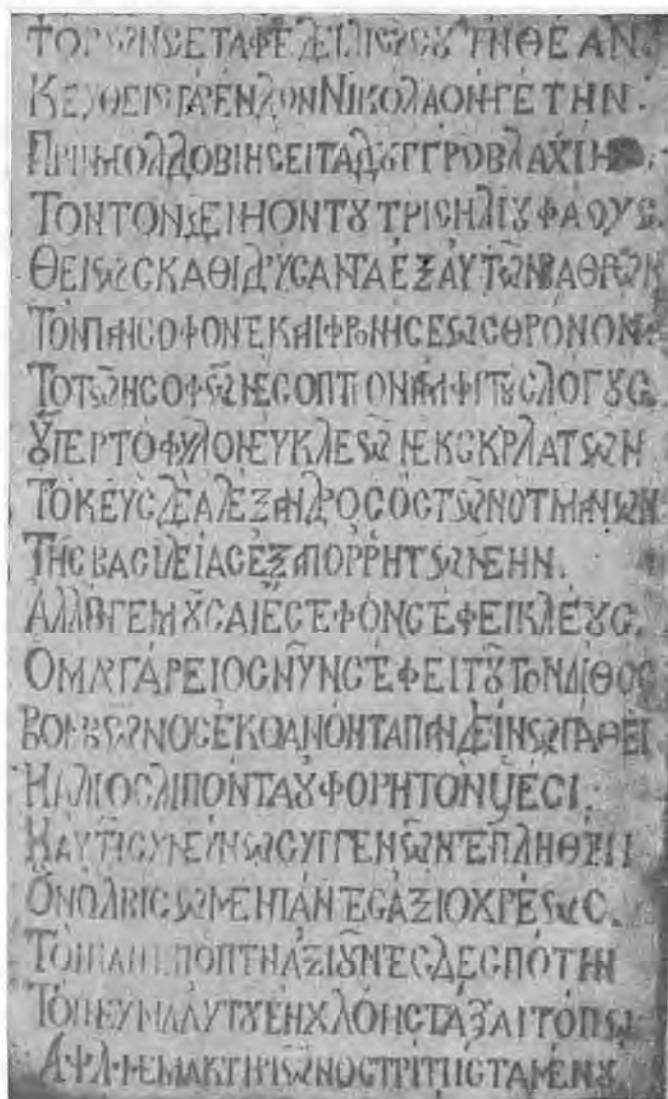 ΘΕΑΝ.
ΚΕΥΘΕΙ ΓΑΡ ΕΝΔΟΝ ΝΙΚΟΛΑΟΝ ΓΕ ΤΗΝ.
ΠΡΙΝ ΜΟΛΔΟΒΙΗΣ ΕΙΤΑ Δ ȢΓΓΡΟΒΛΑΧΙΗΣ.
ΤΟΝ ΤΟΝ ΔΕΙΜΟΝ ΤȢ ΤΡΙΣΗΛΙȢ ΦΑΟΥΣ.
ΘΕΙΩΣ ΚΑΘΙΔΡΥΣΑΝΤΑ ΕΞ ΑΥΤΩΝ ΒΑΘΡΩΝ
ΤΟΝ ΠΑΝΣΟΦΟΝ ΤΕ ΚΑΙ ΦΡΟΝΗΣΕΩΣ ΘΡΟΝΟΝ.
ΤΟ ΤΩΝ ΣΟΦΩΝ ΕΣΟΠΤΡΟΝ ΑΜΦΙ ΤȢΣ ΛΟΓȢΣ.
ȢΠΕΡ ΤΟ ΦΥΛΟΝ ΕΥΚΛΕΩΝ ΕΚ ΣΚΡΛΑΤΩΝ
ΤΟΚΕΥΣ ΔΕ ΑΛΕΞΑΝΔΡΟΣ ΟΣ ΤΩΝ ΟΤΜΑΝΩΝ
ΤΗΣ ΒΑΣΙΛΕΙΑΣ ΕΞ ΑΠΟΡΡΗΤΩΝ ΕΗΝ.
ΑΛΛ ΟΝ ΓΕ ΜȢΣΑΙ ΕΣΤΕΦΟΝ ΣΤΕΦΕΙ ΚΛΕȢΣ.
Ο ΜΑΡΓΑΡΕΙΟΣ ΝΥΝ ΣΤΕΦΕΙ ΤȢΤΟΝ ΛΙΘΟΣ
ΒΟΜΒΩΝΟΣ ΕΚΘΑΝΟΝΤΑ ΠΑΝΔΕΙΝΩ ΠΑΘΕΙ
ΛΙΠΟΝΤΑ Ȣ ΦΟΡΗΤΟΝ ΥΙΕΣΙ.
Η ΑΥΤΗ ΣΥΝΕΥΝΩ ΣΥΓΓΕΝΩΝ ΤΕ ΠΛΗΘΕΙ
ΟΝ ΟΛΒΙΣΩΜΕΝ ΠΑΝΤΕΣ ΑΞΙΟΧΡΕΩΣ.
ΤΟΝ ΠΑΝΤΕΠΟΠΤΗΝ ΑΞΙȢΝΤΕΣ ΔΕΣΠΟΤΗΝ
ΤΟ ΠΝΕΥΜΑ ΑΥΤȢ ΕΝ ΧΛΟΗΣ ΤΑΞΑΙ ΤΟΠΩ
ΑΨΛ· ΜΕΜΑΚΤΗΡΙΩΝΟΣ ΤΡΙΤΗ ΙΣΤΑΜΕΝȢ